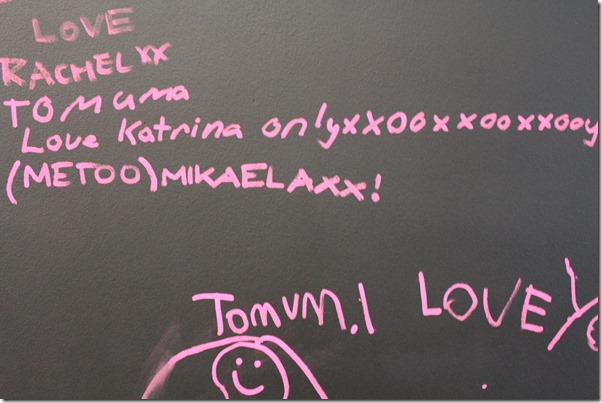 LOVE
RACHEL xx
TO MUMA
Love Katrina onlyxXOOxxooxxooy
(METOO)MIKAELAxx!
TOMUM.I LOVE Yo